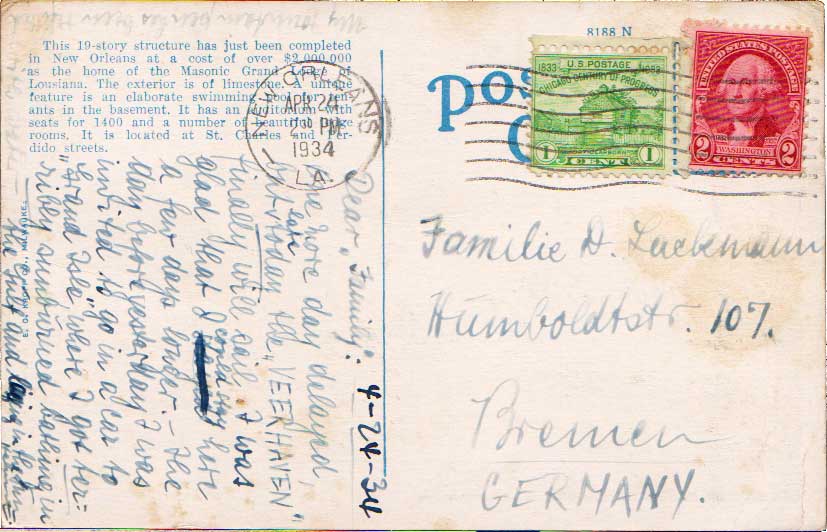 8188 N
This 19-story structure has just been completed
in New Orleans at a cost of over $2,000,000
as the home of the Masonic Grand Lodge of
Lousiana. The exterior is of limestone. A unique
feature is an elaborate swimming pool for ten-
ants in the basement. It has an auditorium with
seats for 1400 and a number of beautiful lodge
rooms. It is located at St. Charles and Per-
dido streets.
NEW ORLEANS
APR 24
PM
1934
LA.
1833 U.S. POSTAGE 1933
CHICAGO CENTURY OF PROGRESS
1 CENT 1
UNITED STATES POSTAGE
WASHINGTON
2 CENTS 2
4-24-34
Dear "Family":
One more day delayed,
but today the "VEERHAVEN"
finally will sail. I was
glad that I could stay here
a few days longer. – The
day before yesterday I was
invited to go in a car to
"Grand Isle," where I got ter=
ribly sunburned bathing in
the surf and lying in the
Familie D. Luekemann
Humboldtstr. 107.
Bremen
GERMANY.